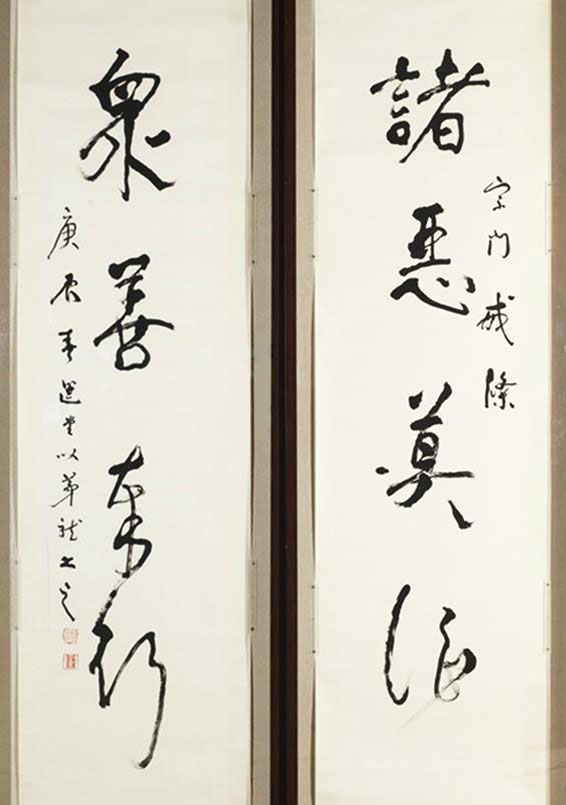 宗門戒條
諸惡莫作
衆善奉行
庚辰春選堂以茅龍書之